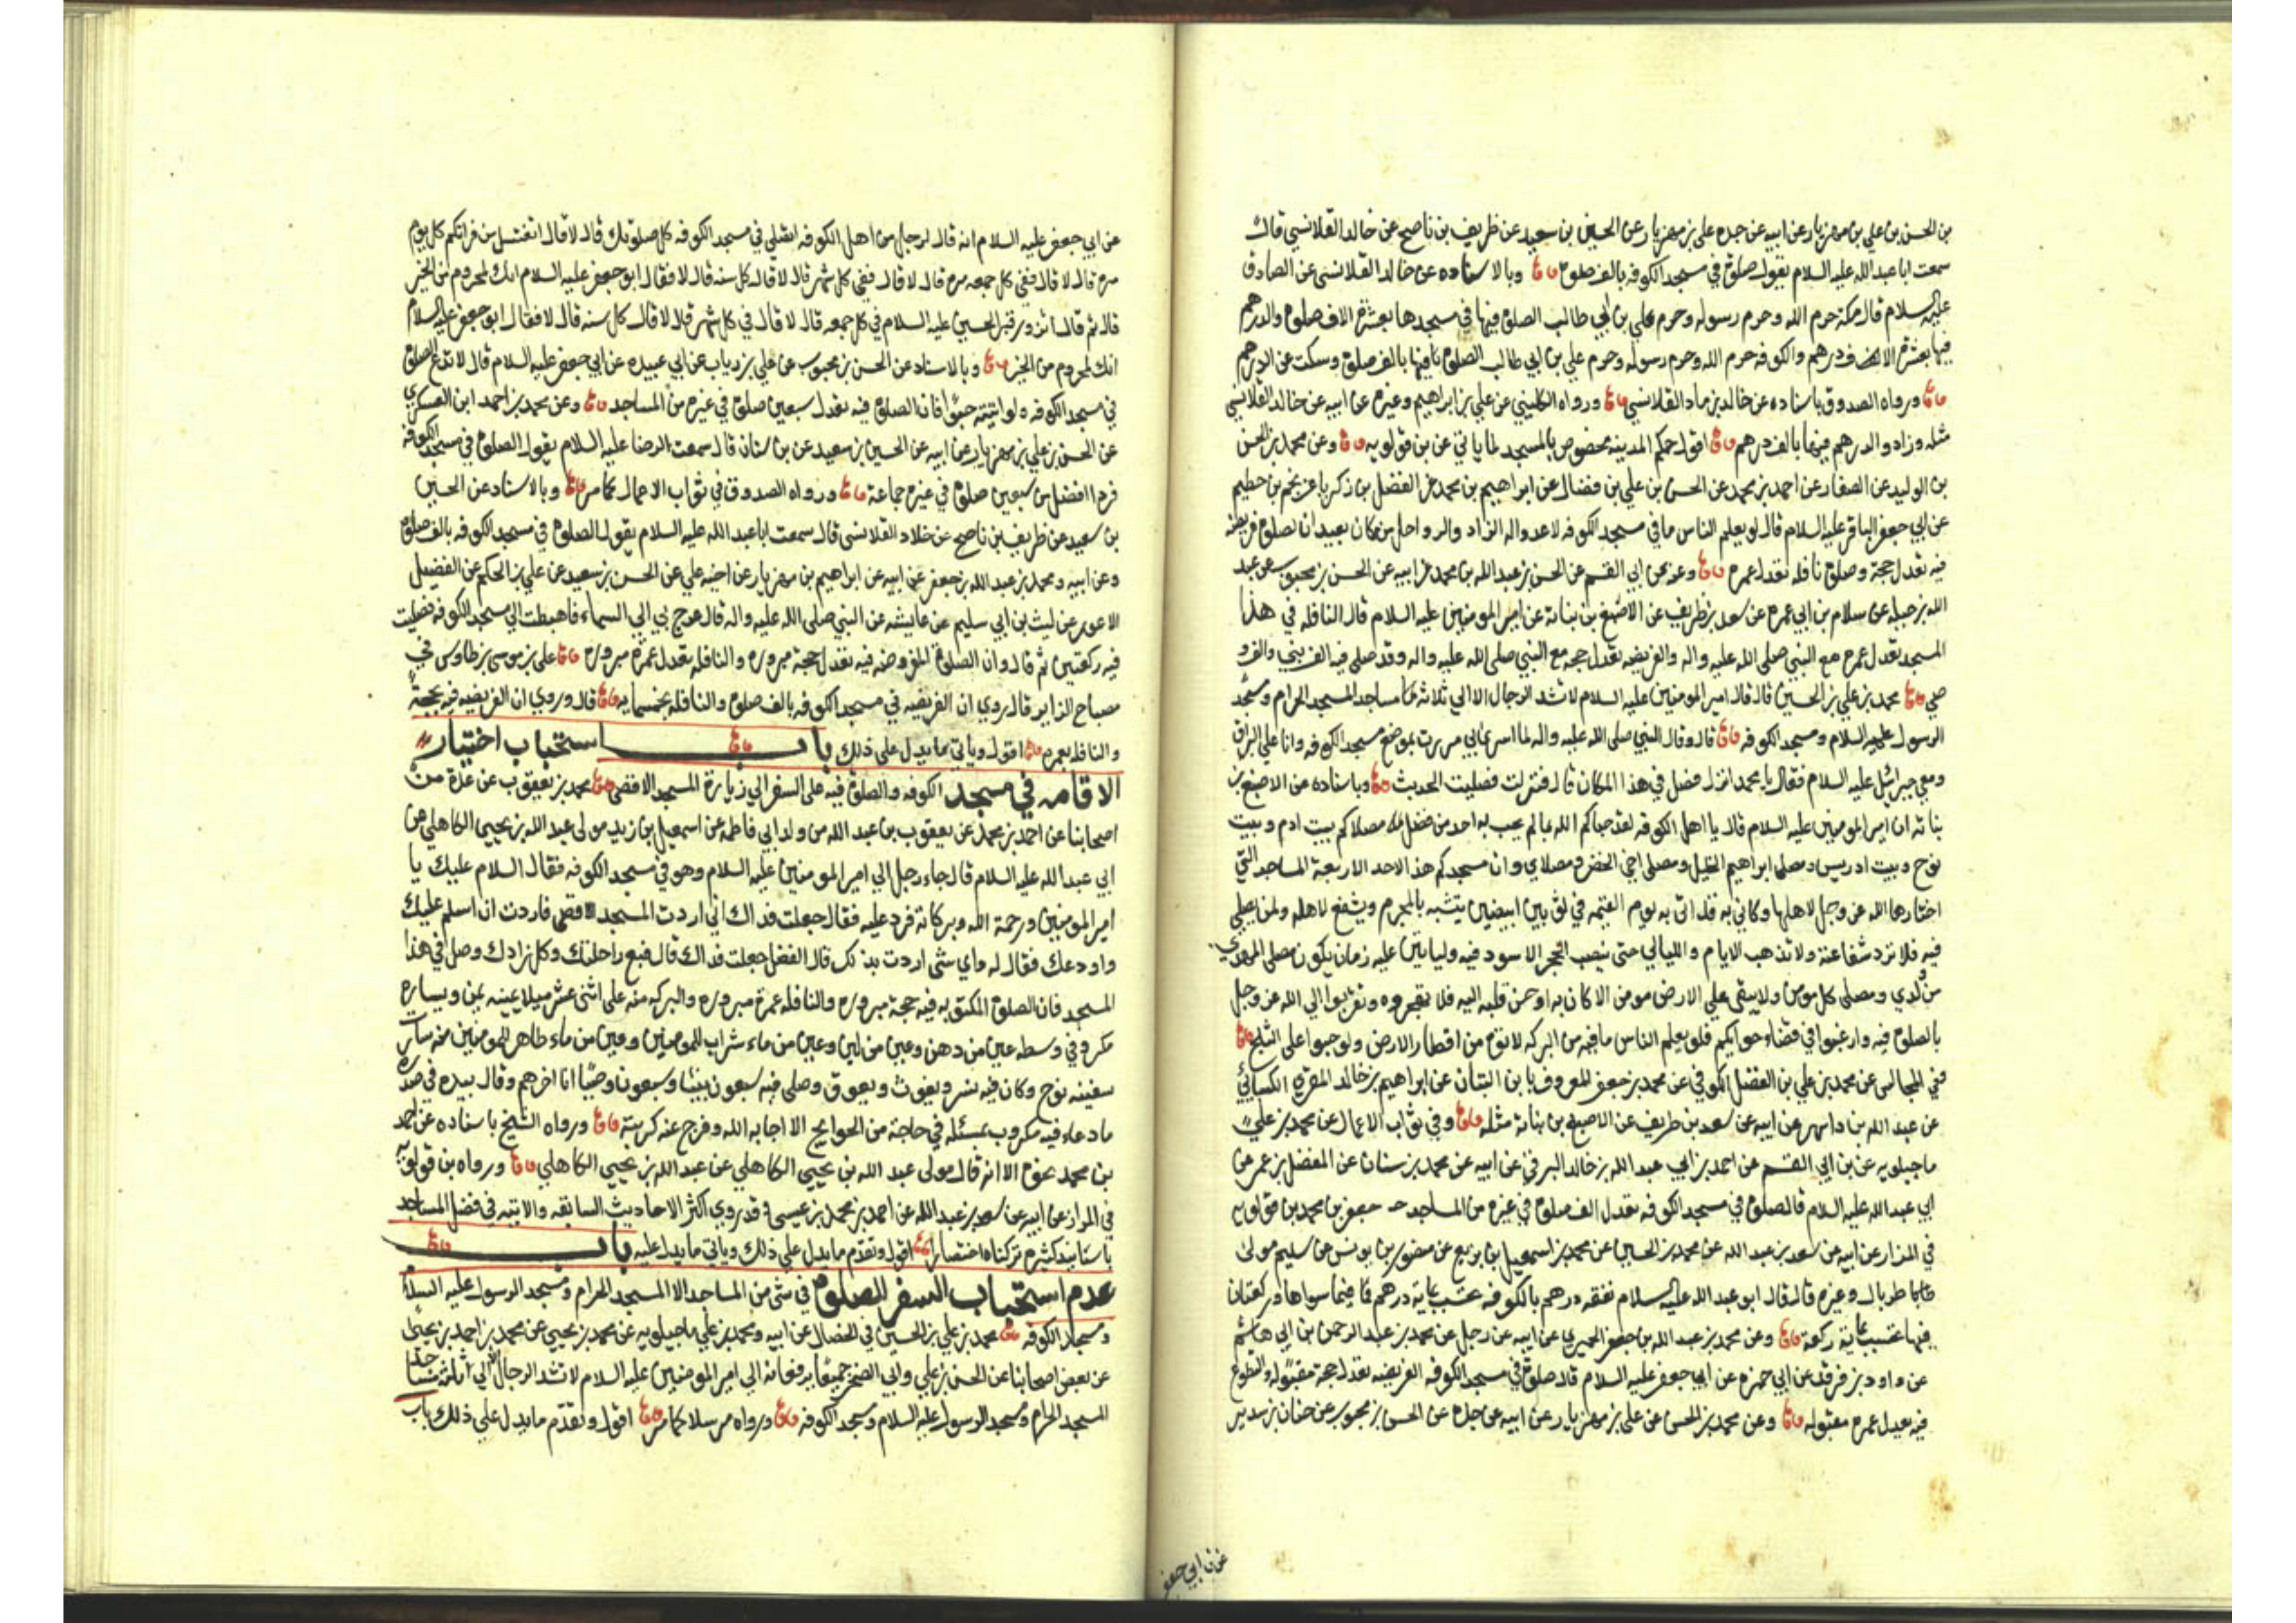 بن الحسن بن علي بن مهزيار عن ابيه عن جده علي بن مهزيار عن الحسين بن سعيد عن ظريف بن ناصح عن خالد القلانسي قال
سمعت ابا عبد الله عليه السلام يقول صلوة في مسجد الكوفه بالف صلوة وبالاسناده عن خالد القلانسي عن الصادق
عليه السلام قال مكة حرم الله وحرم رسوله وحرم علي بن ابي طالب الصلوة فيها في مسجدها بعشرة الاف صلوة والدرهم
فيها بعشرة الاف درهم والكوفه حرم الله وحرم رسوله وحرم علي بن ابي طالب الصلوة فيها بالف صلوة وسكت عن الدرهم
ورواه الصدوق باسناده عن خالد بن ماد القلانسي ورواه الكليني عن علي بن ابراهيم وغيره عن ابيه عن خالد القلانسي
مثله وزاد والدرهم فيها بالف درهم اقول حكم المدينه مخصوص بالمسجد لما ياتي عن بن قولويه وعن محمد بن الحسن
بن الوليد عن الصفار عن احمد بن محمد عن الحسن بن علي بن فضال عن ابراهيم بن محمد عن الفضل بن زكريا عن نجم بن حطيم
عن ابي جعفر الباقر عليه السلام قال لو يعلم الناس ما في مسجد الكوفه لاعدوا له الزاد والرواحل من مكان بعيد ان صلوة فريضه
فيه تعدل حجة وصلوة نافله تعدل عمره وعنه عن ابي القسم عن الحسن بن عبد الله بن محمد عن ابيه عن الحسن بن محبوب عن عبد
الله بن جبله عن سلام بن ابي عمره عن سعد بن ظريف عن الاصبغ بن نباته عن امير المومنين عليه السلام قال النافله في هذا
المسجد تعدل عمره مع النبي صلى الله عليه واله والفريضه تعدل حجه مع النبي صلى الله عليه واله وقد صلى فيه الف نبي والف و
صي محمد بن علي بن الحسين قال قال امير المومنين عليه السلام لا تشد الرحال الا الي ثلاثة مساجد المسجد الحرام ومسجد
الرسول عليه السلام ومسجد الكوفه قال وقال النبي صلى الله عليه واله لما اسري بي مررت بموضع مسجد الكوفه وانا علي البراق
ومعي جبرائيل عليه السلام فقال يا محمد انزل فصل في هذا المكان قال فنزلت فصليت الحديث وباسناده عن الاصبغ بن
نباته ان امير المومنين عليه السلام قال يا اهل الكوفه لقد حباكم الله بما لم يحب به احد من فضل مصلاكم بيت ادم وبيت
نوح وبيت ادريس ومصلى ابراهيم الخليل ومصلى اخي الخضر ومصلاي وان مسجدكم هذا لاحد الاربعة المساجد التي
اختارها الله عز وجل لاهلها وكاني به قد اتى به يوم القيمه في ثوبين ابيضين يتشبه بالمحرم ويشفع لاهله ولمن يصلي
فيه فلا ترد شفاعته ولا تذهب الايام والليالي حتى ينصب الحجر الاسود فيه ولياتين عليه زمان يكون مصلى المهدي
من ولدي ومصلى كل مومن ولا يبقى علي الارض مومن الا كان به او حن قلبه اليه فلا تهجروه وتقربوا الي الله عز وجل
بالصلوة فيه وارغبوا في قضاء حوايجكم فلو يعلم الناس ما فيه من البركه لاتوه من اقطار الارض ولو حبوا على الثلج
في المجالس عن محمد بن علي بن الفضل الكوفي عن محمد بن جعفر المعروف بابن التبان عن ابراهيم بن خالد المقري الكسائي
عن عبد الله بن داهر عن ابيه عن سعد بن طريف عن الاصبغ بن نباته مثله وفي ثواب الاعمال عن محمد بن علي
ماجيلويه عن بن ابي القسم عن احمد بن ابي عبد الله بن خالد البرقي عن ابيه عن محمد بن سنان عن المفضل بن عمر عن
ابي عبد الله عليه السلام قال صلوة في مسجد الكوفه تعدل الف صلوة في غيره من المساجد جعفر بن محمد بن قولويه
في المزار عن ابيه عن سعد بن عبد الله عن محمد بن الحسين عن محمد بن اسمعيل بن بزيع عن منصور بن يونس عن سليم مولى
طربال وغيره قال قال ابو عبد الله عليه السلام نفقه درهم بالكوفه تحسب بمايه درهم فيما سواها وركعتان
فيها تحسب بماية ركعة وعن محمد بن عبد الله بن جعفر الحميري عن ابيه عن رجل عن محمد بن عبد الرحمن بن ابي هاشم
عن داود بن فرقد عن ابي حمزه عن ابي جعفر عليه السلام قال صلوة في مسجد الكوفه الفريضه تعدل حجة مقبوله والتطوع
فيه يعدل عمره مقبوله وعن محمد بن الحسن عن علي بن مهزيار عن ابيه عن جده عن الحسن بن محبوب عن حنان بن سدير
عن ابي جعفر
عن ابي جعفر عليه السلام انه قال لرجل من اهل الكوفه اتصلي في مسجد الكوفه كل صلوتك قال لا قال اتغتسل من فراتكم كل يوم
مره قال لا قال ففي كل جمعه مره قال لا قال ففي كل شهر قال لا قال كل سنه قال لا فقال ابو جعفر عليه السلام انك لمحروم من الخير
قال ثم قال اتزور قبر الحسين عليه السلام في كل جمعه قال لا قال في كل شهر قال لا قال كل سنه قال لا فقال ابو جعفر عليه السلام
انك لمحروم من الخير وبالاسناد عن الحسن بن محبوب عن علي بن رياب عن ابي عبيده عن ابي جعفر عليه السلام قال لا تدع الصلوة
في مسجد الكوفه ولو اتيته حبوا فان الصلوة فيه تعدل سبعين صلوة في غيره من المساجد وعن محمد بن احمد ابن العسكري
عن الحسن بن علي بن مهزيار عن ابيه عن الحسين بن سعيد عن بن سنان قال سمعت الرضا عليه السلام يقول الصلوة في مسجد الكوفه
فردا افضل من سبعين صلوة في غيره جماعة ورواه الصدوق في ثواب الاعمال كما مر وبالاسناد عن الحسين
بن سعيد عن ظريف بن ناصح عن خلاد القلانسي قال سمعت ابا عبد الله عليه السلام يقول الصلوة في مسجد الكوفه بالف صلوة
وعن ابيه ومحمد بن عبد الله بن جعفر عن ابيه عن ابراهيم بن مهزيار عن اخيه علي عن الحسن بن سعيد عن علي بن الحكم عن الفضيل
الاعور عن ليث بن ابي سليم عن عايشه عن النبي صلى الله عليه واله قال عرج بي الي السماء فاهبطت الي مسجد الكوفه فصليت
فيه ركعتين ثم قال وان الصلوة المفروضه فيه تعدل حجة مبروره والنافله تعدل عمرة مبروره علي بن موسى بن طاوس في
مصباح الزاير قال روي ان الفريضه في مسجد الكوفه بالف صلوة والنافله بخمسمايه قال وروي ان الفريضه فيه بحجة
والنافله بعمره اقول وياتي ما يدل علي ذلك باب استحباب اختيار
الاقامه في مسجد الكوفه والصلوة فيه علي السفر الي زيارة المسجد الاقصى محمد بن يعقوب عن عدة من
اصحابنا عن احمد بن محمد عن يعقوب بن عبد الله من ولد ابي فاطمه عن اسمعيل بن زيد مولى عبد الله بن يحيى الكاهلي عن
ابي عبد الله عليه السلام قال جاء رجل الي امير المومنين عليه السلام وهو في مسجد الكوفه فقال السلام عليك يا
امير المومنين ورحمة الله وبركاته فرد عليه فقال جعلت فداك اني اردت المسجد الاقصى فاردت ان اسلم عليك
واودعك فقال له واي شئ اردت بذلك قال الفضل جعلت فداك قال فبع راحلتك وكل زادك وصل في هذا
المسجد فان الصلوة المكتوبه فيه حجة مبروره والنافله عمرة مبروره والبركه منه على اثنى عشر ميلا يمينه يمن ويساره
مكر وفي وسطه عين من دهن وعين من لبن وعين من ماء شراب للمومنين وعين من ماء طاهر للمومنين منه سارت
سفينه نوح وكان فيه نسر ويغوث ويعوق وصلى فيه سبعون نبيا وسبعون وصيا انا اخرهم وقال بيده في صدره
ما دعا فيه مكروب بمسئله في حاجة من الحوايج الا اجابه الله وفرج عنه كربته ورواه الشيخ باسناده عن احمد
بن محمد نحوه الا انه قال مولى عبد الله بن يحيي الكاهلي عن عبد الله بن يحيي الكاهلي ورواه بن قولويه
في المزار عن ابيه عن سعد بن عبد الله عن احمد بن محمد بن عيسى وقد روي اكثر الاحاديث السابقه والاتيه في فضل المساجد
باسانيد كثيره تركناه اختصارا اقول وتقدم ما يدل علي ذلك وياتي ما يدل عليه باب
عدم استحباب السفر للصلوة في شئ من المساجد الا المسجد الحرام ومسجد الرسول عليه السلام
ومسجد الكوفه محمد بن علي بن الحسين في الخصال عن ابيه ومحمد بن علي ماجيلويه عن محمد بن يحيي عن محمد بن احمد بن يحيى
عن بعض اصحابنا عن الحسن بن علي وابي الصخر جميعا يرفعانه الي امير المومنين عليه السلام لا تشد الرحال الا الي ثلثة مساجد
المسجد الحرام ومسجد الرسول عليه السلام ومسجد الكوفه ورواه مرسلا كما مر اقول وتقدم ما يدل علي ذلك باب